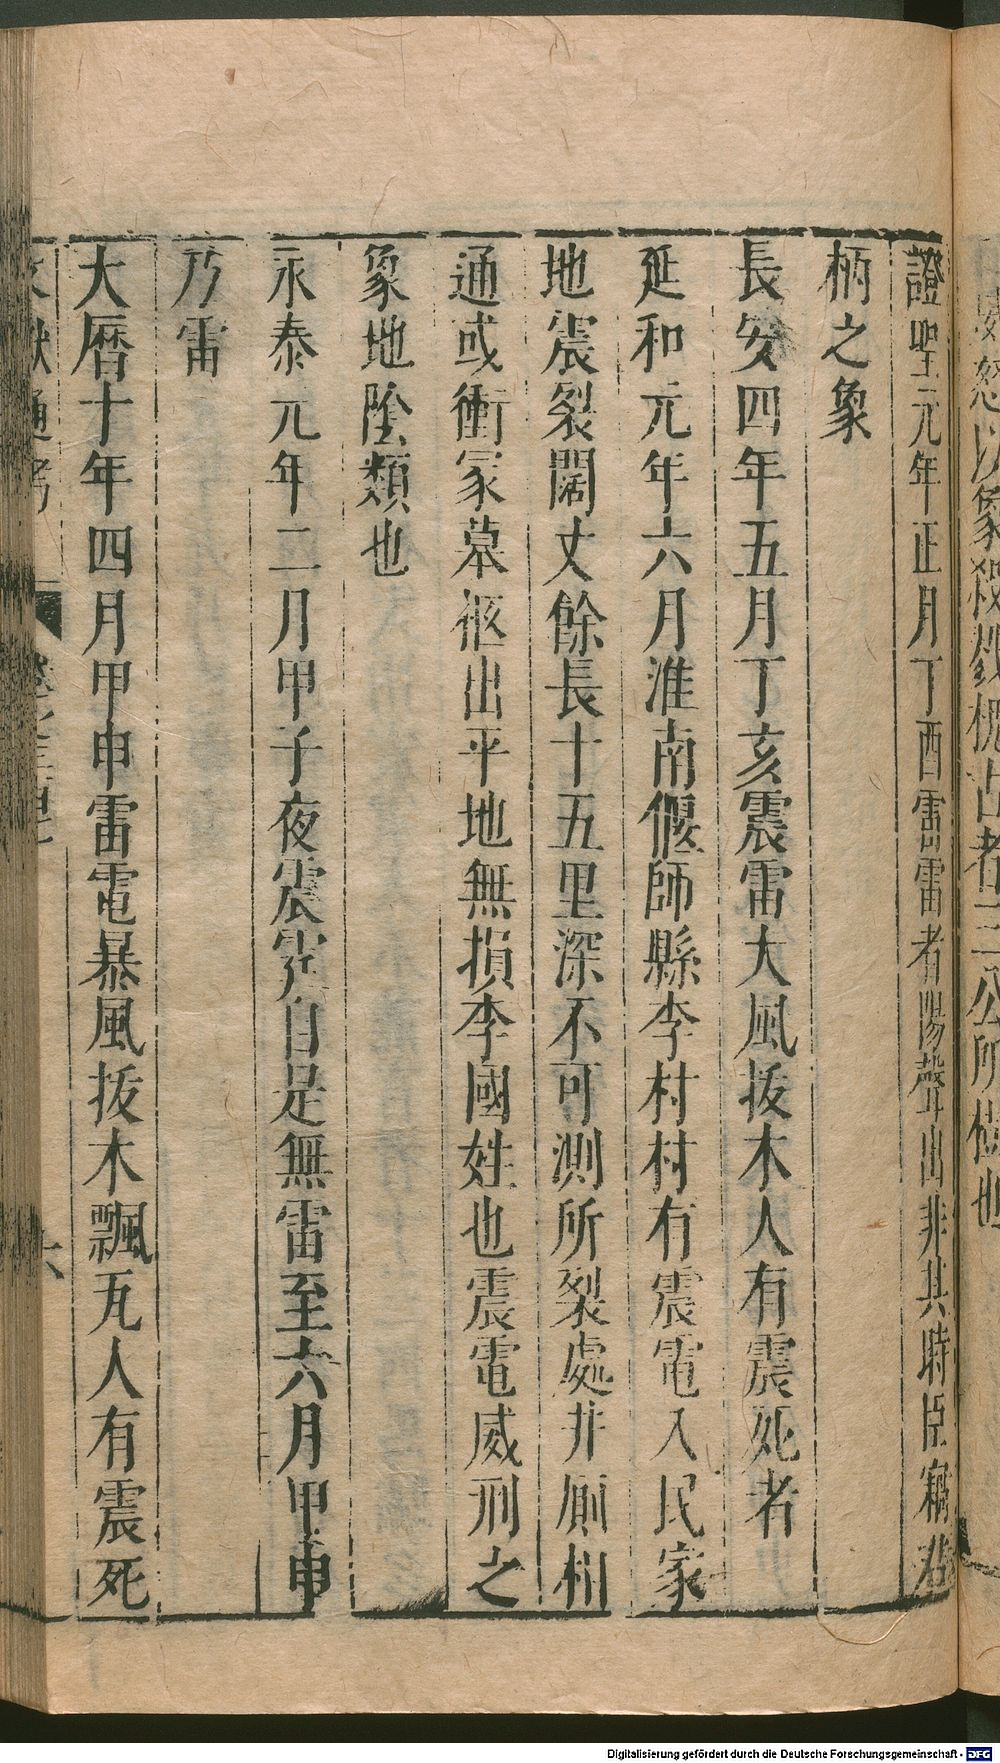 怒以
占者三公所
也
證聖元年正月丁酉雷雷者陽聲出非其時臣竊君
柄之象
長安四年五月丁亥震雷大風拔木人有震死者
延和元年六月淮南偃師縣李村村有震電入民家
地震裂闊丈餘長十五里深不可測所裂處井厠相
通或衝冢墓柩出平地無損李國姓也震電威刑之
象地陰類也
永泰元年二月甲子夜震霆自是無雷至六月甲申
乃雷
大曆十年四月甲申雷電暴風拔木飄瓦人有震死
獻通考
六
Digitalisierung gefördert durch die Deutsche Forschungsgemeinschaft - DFG